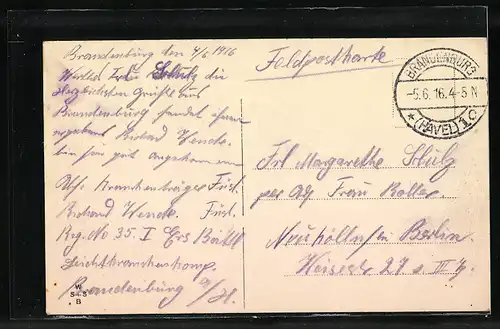 Brandenburg den 4/6 1916
Wertes Frl. Stulz die
Herzlichsten Grüße aus
Brandenburg sendet ihnen
ergebenst Richard Wencke.
bin gut angekommen
Richard Wencke. Füsl.
Reg. No 35. I Ers Batl
Leichtkrankenkomp.
Brandenburg a/H.
Feldpostkarte
BRANDENBURG
-5.6.16.4-5N
*(HAVEL)1c
Frl Margarethe Stulz
per Adr Frau Koller.
Neukölln in Berlin.
27 III
W
S+S
B